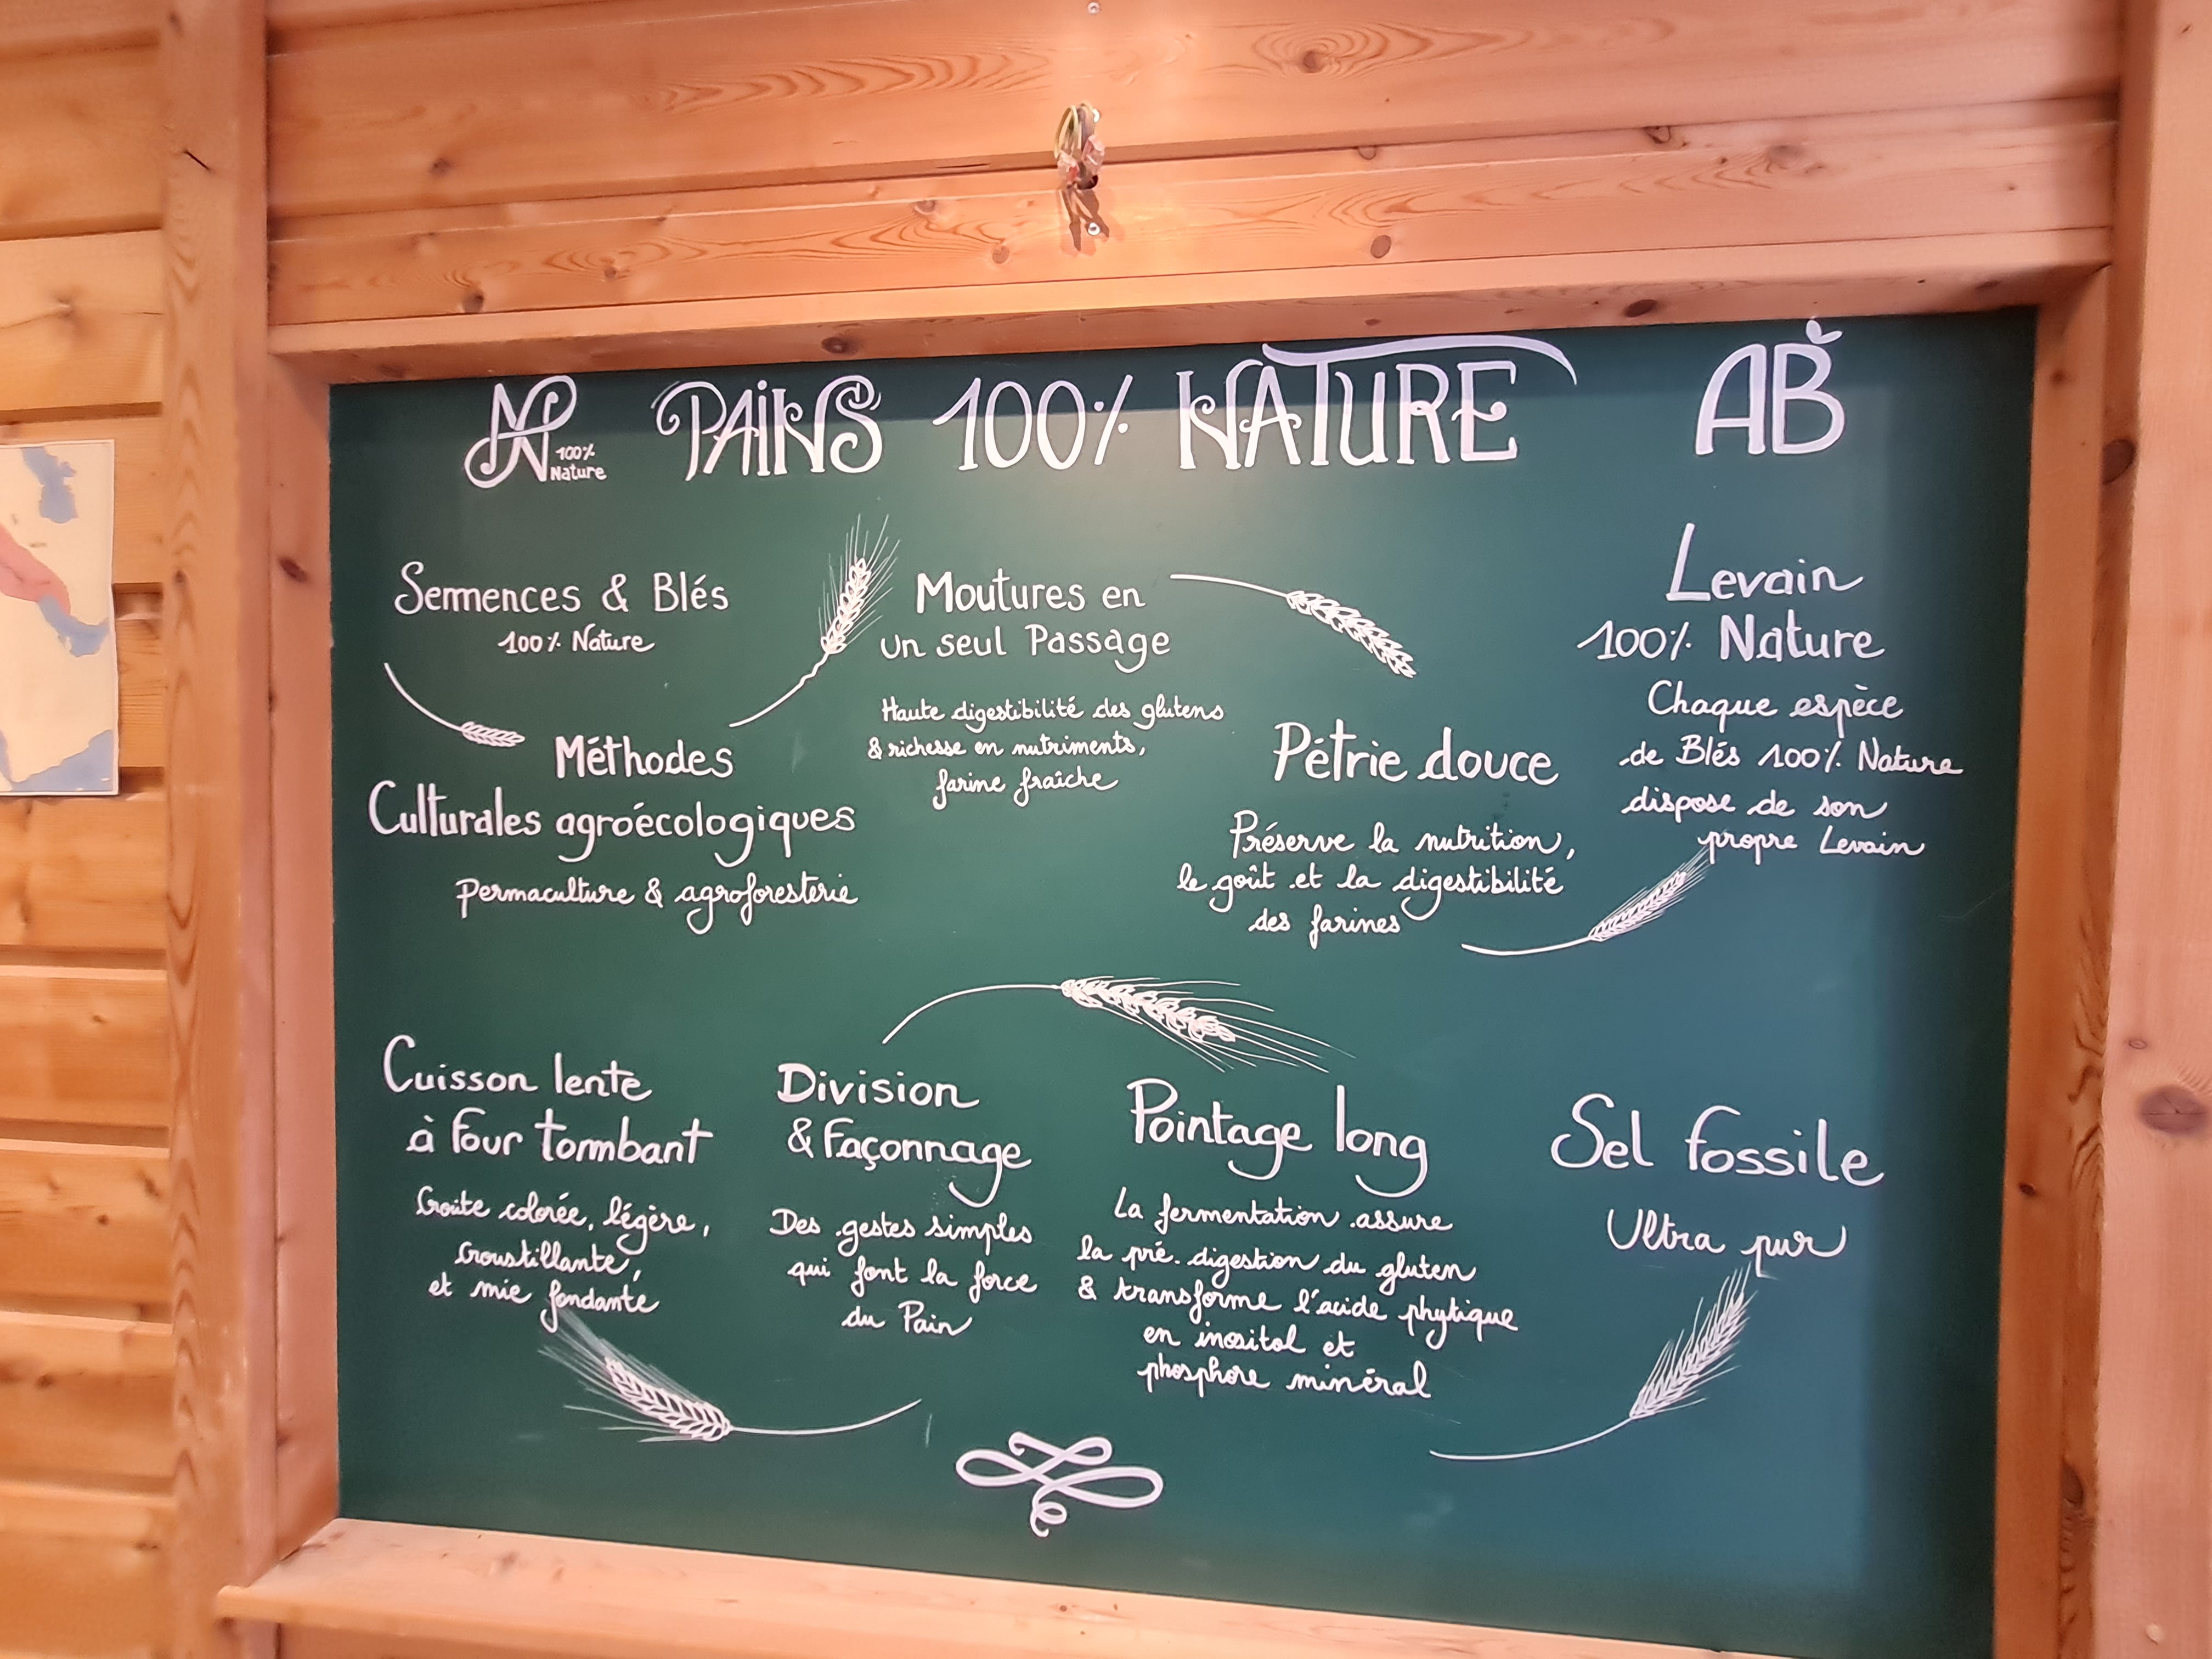 PN 100% Nature
PAINS 100% NATURE
AB
Semences & Blés
100% Nature
Méthodes
Culturales agroécologiques
Permaculture & agroforesterie
Moutures en
un seul Passage
Haute digestibilité des glutens
& richesse en nutriments,
farine fraîche
Pétrie douce
Préserve la nutrition,
le goût et la digestibilité
des farines
Levain
100% Nature
Chaque espèce
de Blés 100% Nature
dispose de son
propre Levain
Cuisson lente
à four tombant
Croûte colorée, légère,
croustillante,
et mie fondante
Division
& Façonnage
Des gestes simples
qui font la force
du Pain
Pointage long
La fermentation assure
la pré-digestion du gluten
& transforme l'acide phytique
en inositol et
phosphore minéral
Sel fossile
Ultra pur